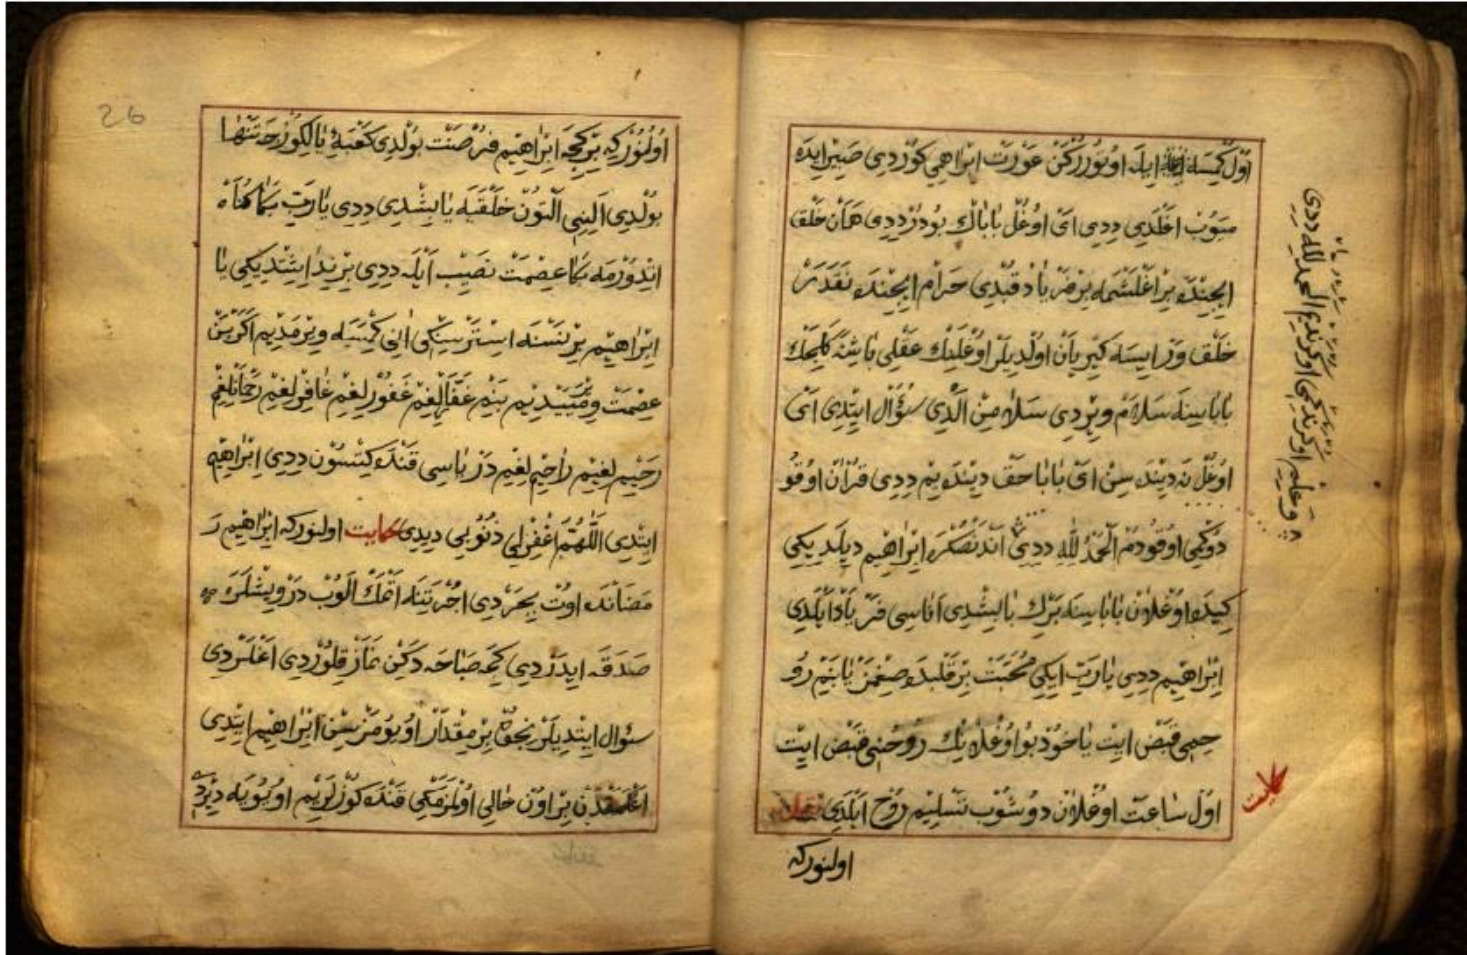 اول كمسه ايله اوتوررركن عورت ابراهيمي كوردي صبر ايده
ميوب اغلدي ددي اى اوغل باباك بودر ددي همان خلق
ايچنده بر اغلشمه بر فرياد قپدي حرام ايچنده نقدر
خلق وار ايسه كريان اولديلر اوغلنك عقلي باشنه كليجك
باباسينه سلام ويردي سلام من الذي سؤال ايتدي اى
اوغل نه دينده سن اى بابا حق دينده يم ددي قرآن اوقو
دوكمى اوقودم الحمد لله ددي اندنصكره ابراهيم ديلديكي
كيده اوغلان باباسينه برك يابشدي اناسي فرياد ايلدي
ابراهيم ددي يا رب ايكي محبت بر قلبده صغمز يا بنم رو
حمى قبض ايت يا خود بو اوغلانك روحني قبض ايت
اول ساعت اوغلان دوشوب تسليم روح ايلدي
اولنوركه
وعلم اوكرندكمى اوكرندم الحمد لله ددي
حكايت
26
اولنوركه بر كيجه ابراهيم فرصت بولدي كعبه يي يالكوز تنها
بولدي الينى التون حلقيه يابشدي ددي يا رب بكا كناه
اندورمه بكا عصمت نصيب ايله ددي بر ندا ايشتديكي يا
ابراهيم بر نسنه استرسنكي انى كمسيه ويرمديم اكر سن
عصمت ويرميديم بنم غفارلغم غفورلغم غافرلغم رحمانلغم
رحيملغم راحملغم درياسي قنده كيتسون ددي ابراهيم
ايتدي اللهم اغفر لي ذنوبي ديدي حكايت اولنوركه ابراهيم ر
مضانده اوت بچردي اجرتينه اتمك الوب درويشلره
صدقه ايدردي كيجه صباحه دكين نماز قلوردي اغلردي
سؤال ايتديلر نيچون بر مقدار اويومزسن ابراهيم ايتدي
اغلمقدن بر اون خالي اولمزمكي قنده كوزلريم اويويه ديردي